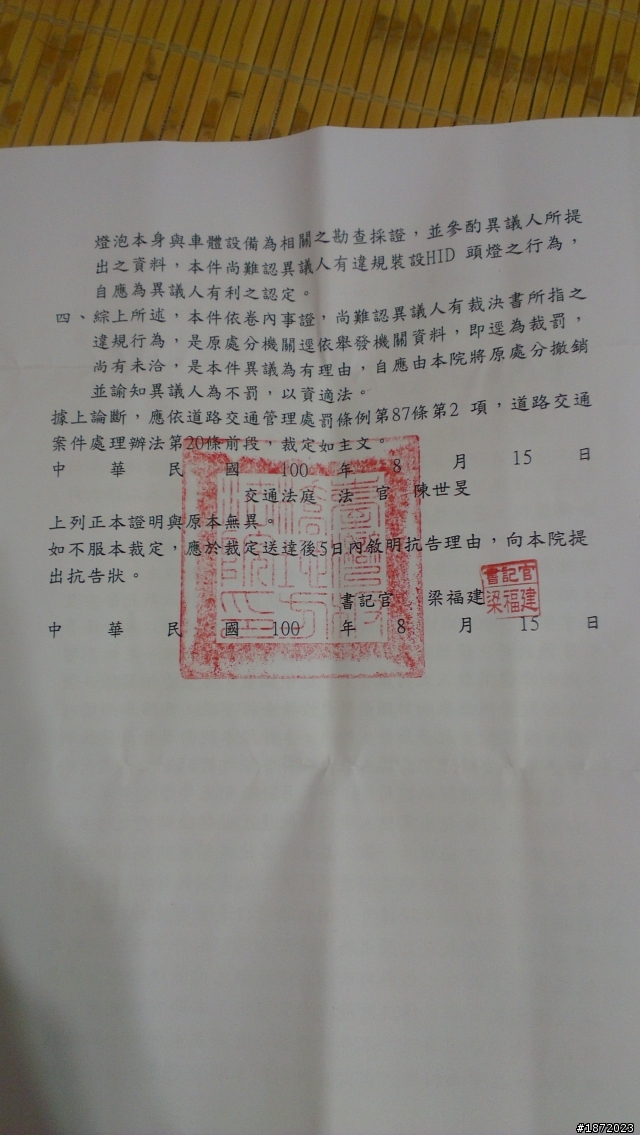 燈泡本身與車體設備為相關之勘查採證，並參酌異議人所提
出之資料，本件尚難認異議人有違規裝設HID 頭燈之行為，
自應為異議人有利之認定。
四、綜上所述，本件依卷內事證，尚難認異議人有裁決書所指之
違規行為，是原處分機關逕依舉發機關資料，即逕為裁罰，
尚有未洽，是本件異議為有理由，自應由本院將原處分撤銷
並諭知異議人為不罰，以資適法。
據上論斷，應依道路交通管理處罰條例第87條第2 項，道路交通
案件處理辦法第20條前段，裁定如主文。
中 華 民 國 100 年 8 月 15 日
交通法庭 法 官 陳世旻
上列正本證明與原本無異。
如不服本裁定，應於裁定送達後5日內敘明抗告理由，向本院提
出抗告狀。
書記官 梁福建
書記官
梁福建
中 華 民 國 100 年 8 月 15 日
#1872023